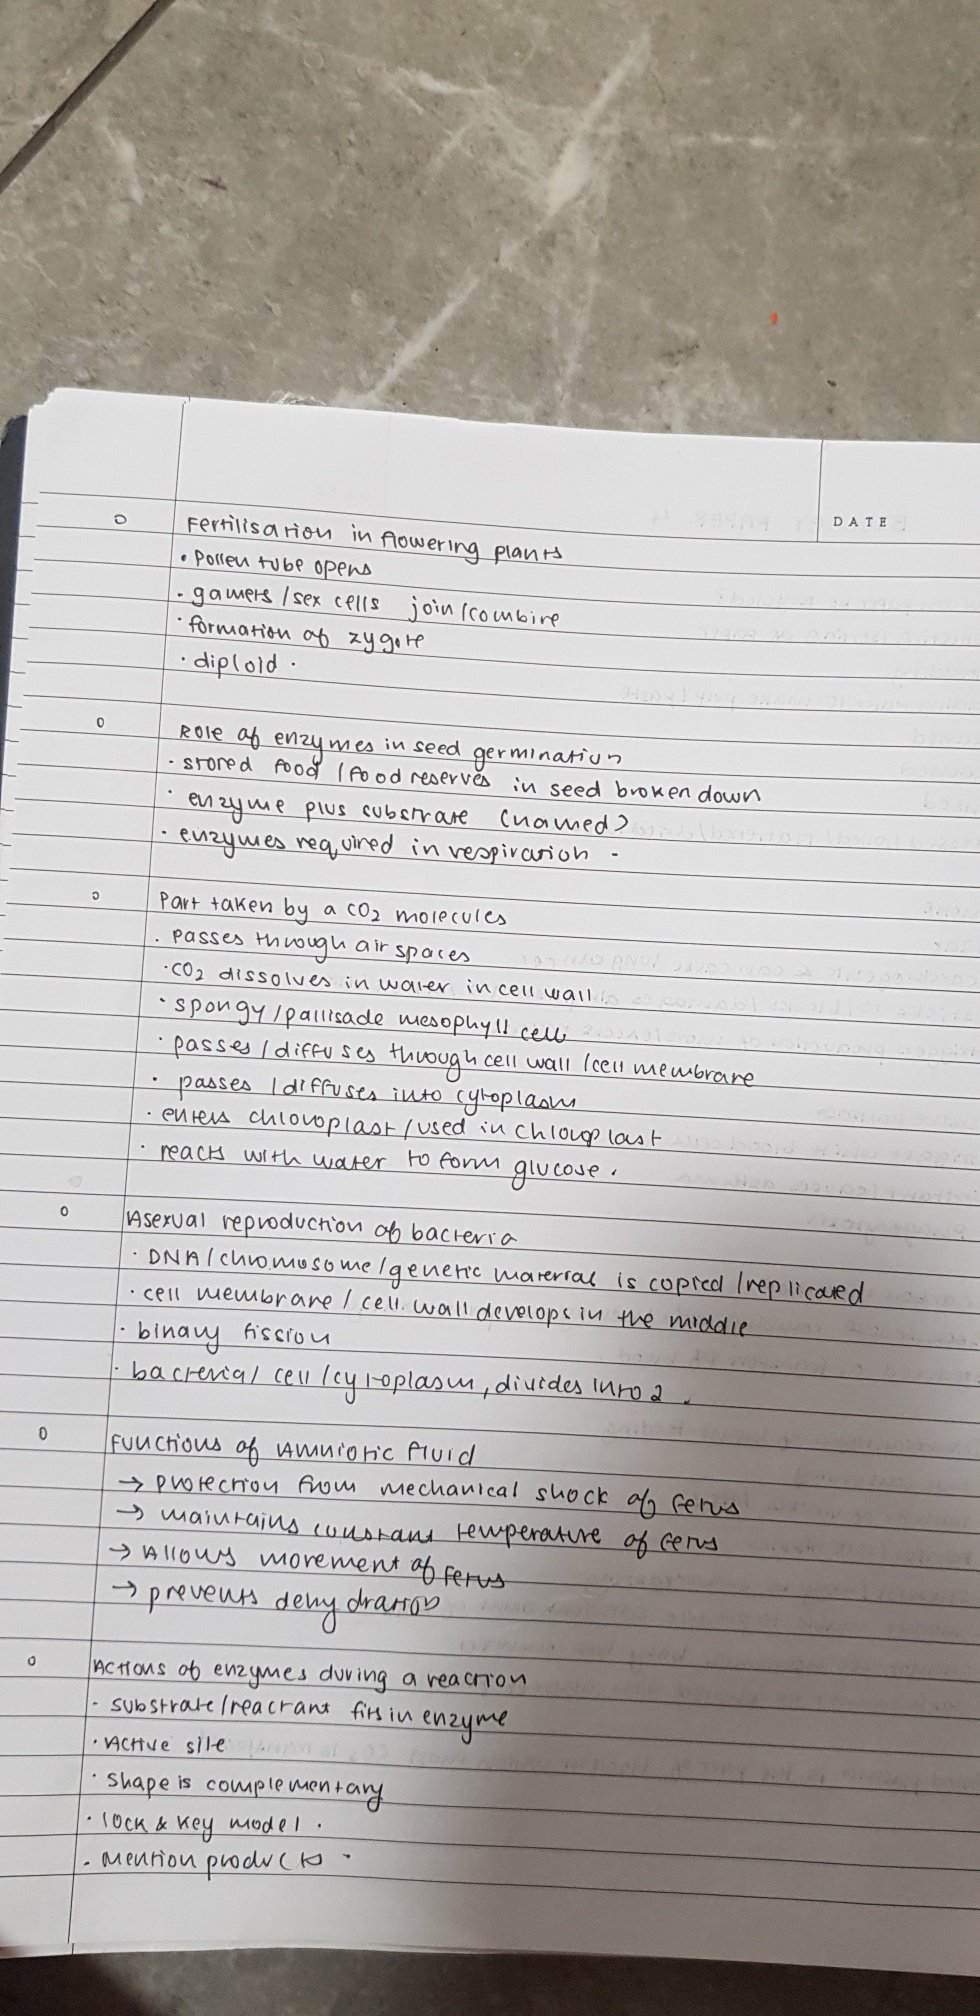 DATE
Fertilisation in flowering plants
• Pollen tube opens
• gametes / sex cells join / combine
• formation of zygote
• diploid.
Role of enzymes in seed germination
• stored food / food reserves in seed broken down
• enzyme plus substrate (named)
• enzymes required in respiration.
Part taken by a CO2 molecules
• passes through air spaces
• CO2 dissolves in water in cell wall.
• spongy / pallisade mesophyll cell
• passes / diffuses through cell wall / cell membrane
• passes / diffuses into cytoplasm
• enters chloroplast / used in chloroplast
• reacts with water to form glucose.
Asexual reproduction of bacteria
• DNA / chromosome / genetic material is copied / replicated
• cell membrane / cell wall develops in the middle
• binary fission
• bacterial cell / cytoplasm, divides into 2.
Functions of Amniotic fluid
→ protection from mechanical shock of fetus
→ maintains constant temperature of fetus
→ Allows movement of fetus
→ prevents dehydration
Actions of enzymes during a reaction
• substrate / reactant fits in enzyme
• Active site
• shape is complementary
• lock & key model.
• mention products.